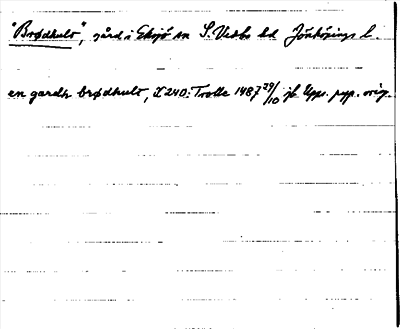 "Brødhult", gård i Eksjö sn S. Vedbo hd Jönköpings l.
en gardh brødhult, X 240: Trolle 1487 29/10 jb Upps. pap. orig.